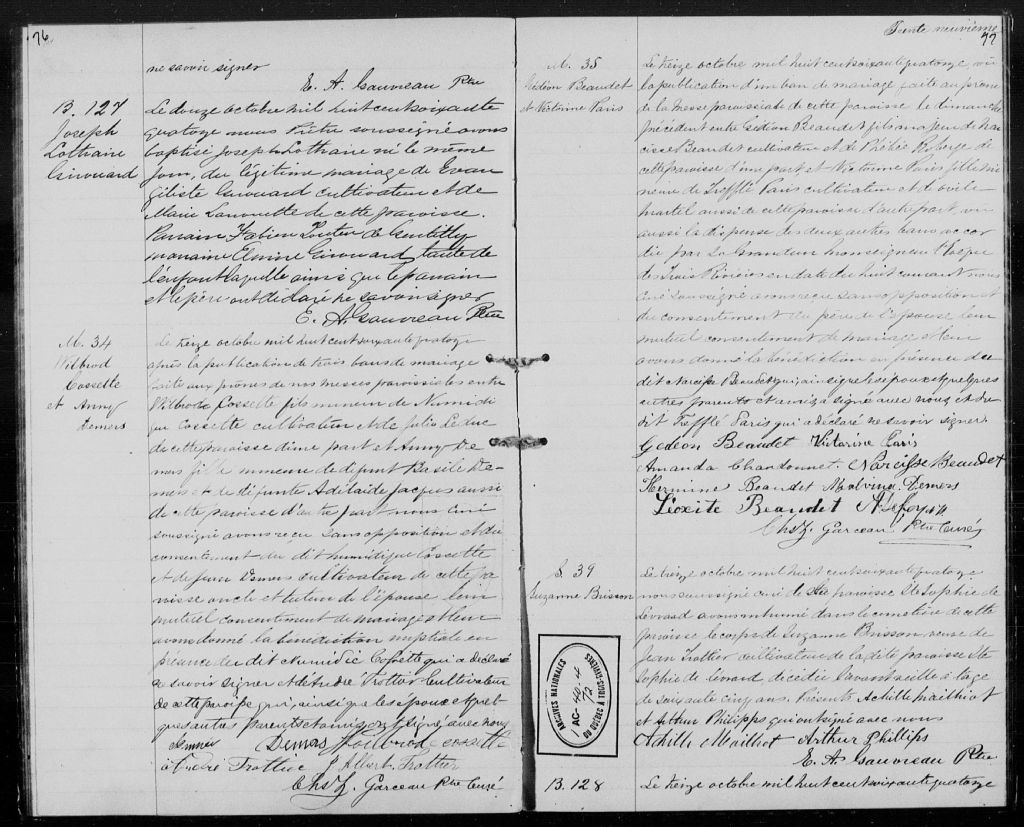 76
ne savoir signer
E. A. Gauvreau Ptre
B. 127
Joseph
Lothaire
Girouard
Le douze octobre mil huit cent soixante
quatorze nous Prêtre soussigné avons
baptisé Joseph Lothaire né le même
jour, du légitime mariage de Evan
géliste Girouard cultivateur et de
Marie Lanouette de cette paroisse.
Parrain Fabien Toutou de Gentilly
marraine Elmire Girouard, tante de
l'enfant laquelle ainsi que le parrain
et le père ont déclaré ne savoir signer
E. A. Gauvreau Ptre
M. 34
Wilbrod
Cossette
et Anny
Demers
Le treize octobre mil huit cent soixante quatorze
après la publication de trois bans de mariage
faite aux prônes de nos messes paroissiales entre
Wilbrode Cossette fils mineur de Numidi
que Cossette cultivateur et de Julie Leduc
de cette paroisse d'une part et Anny De
mers fille mineure de défunt Basile De-
mers et de défunte Adélaide Jacques aussi
de cette paroisse d'autre part nous curé
soussigné avons reçu sans opposition et du
consentement du dit Numidique Cossette
et de Jean Demers cultivateur de cette pa
roisse oncle et tuteur de l'épouse leur
mutuel consentement de mariage et leur
avons donné la bénédiction nuptiale en
présence du dit Numidic Cossette qui a déclaré
ne savoir signer et d'André Trottier Cultivateur
de cette paroisse qui, ainsi que les époux et quel
ques autres parents et amis, ont signé avec nous
Demers Wilbrod Cossette
André Trottier J. Albert Trottier
Chs Z. Garceau Ptre Curé
Trente neuvième
77
M. 35
Gédéon Beaudet
et Victorine Paris
Le treize octobre mil huit cent soixante quatorze, vu
la publication d'un ban de mariage faite au prône
de la messe paroissiale de cette paroisse le dimanche
précédent entre Gédéon Beaudet fils majeur de Nar
cisse Beaudet cultivateur et de
cette paroisse d'une part et Victorine Paris fille mi
neure de Trefflé Paris cultivateur et de
Martel aussi de cette paroisse d'autre part, vu
aussi la dispense des deux autres bans accor
dée par Sa Grandeur Monseigneur l'Evêque
des Trois Rivières en date du huit courant nous
curé soussigné avons reçu sans opposition et
du consentement du père de l'épouse leur
mutuel consentement de mariage et leur
avons donné la bénédiction en présence du
dit Narcisse Beaudet qui, ainsi que les époux et quelques
autres parents et amis a signé avec nous et du
dit Trefflé Paris qui a déclaré ne savoir signer.
Gédéon Beaudet Victorine Paris
Amanda Chandonnet. Narcisse Beaudet
Hermine Beaudet Malvina Demers
Lioxite Beaudet
Chs Z. Garceau Ptre Curé
S. 39
Suzanne Brisson
Le treize octobre mil huit cent soixante quatorze
nous soussigné curé de la paroisse Ste Sophie de
Levrard avons inhumé dans le cimetière de cette
paroisse le corps de Suzanne Brisson veuve de
Jean Trottier cultivateur de la dite paroisse Ste
Sophie de Levrard décédée l'avant veille à l'âge
de soixante cinq ans. Présents Achille Mailhiot
et Arthur Philipps qui ont signé avec nous
Achille Mailhot Arthur Phillips
E. A. Gauvreau Ptre
ARCHIVES NATIONALES
DU QUÉBEC À TROIS-RIVIÈRES
B. 128
Le treize octobre mil huit cent soixante quatorze